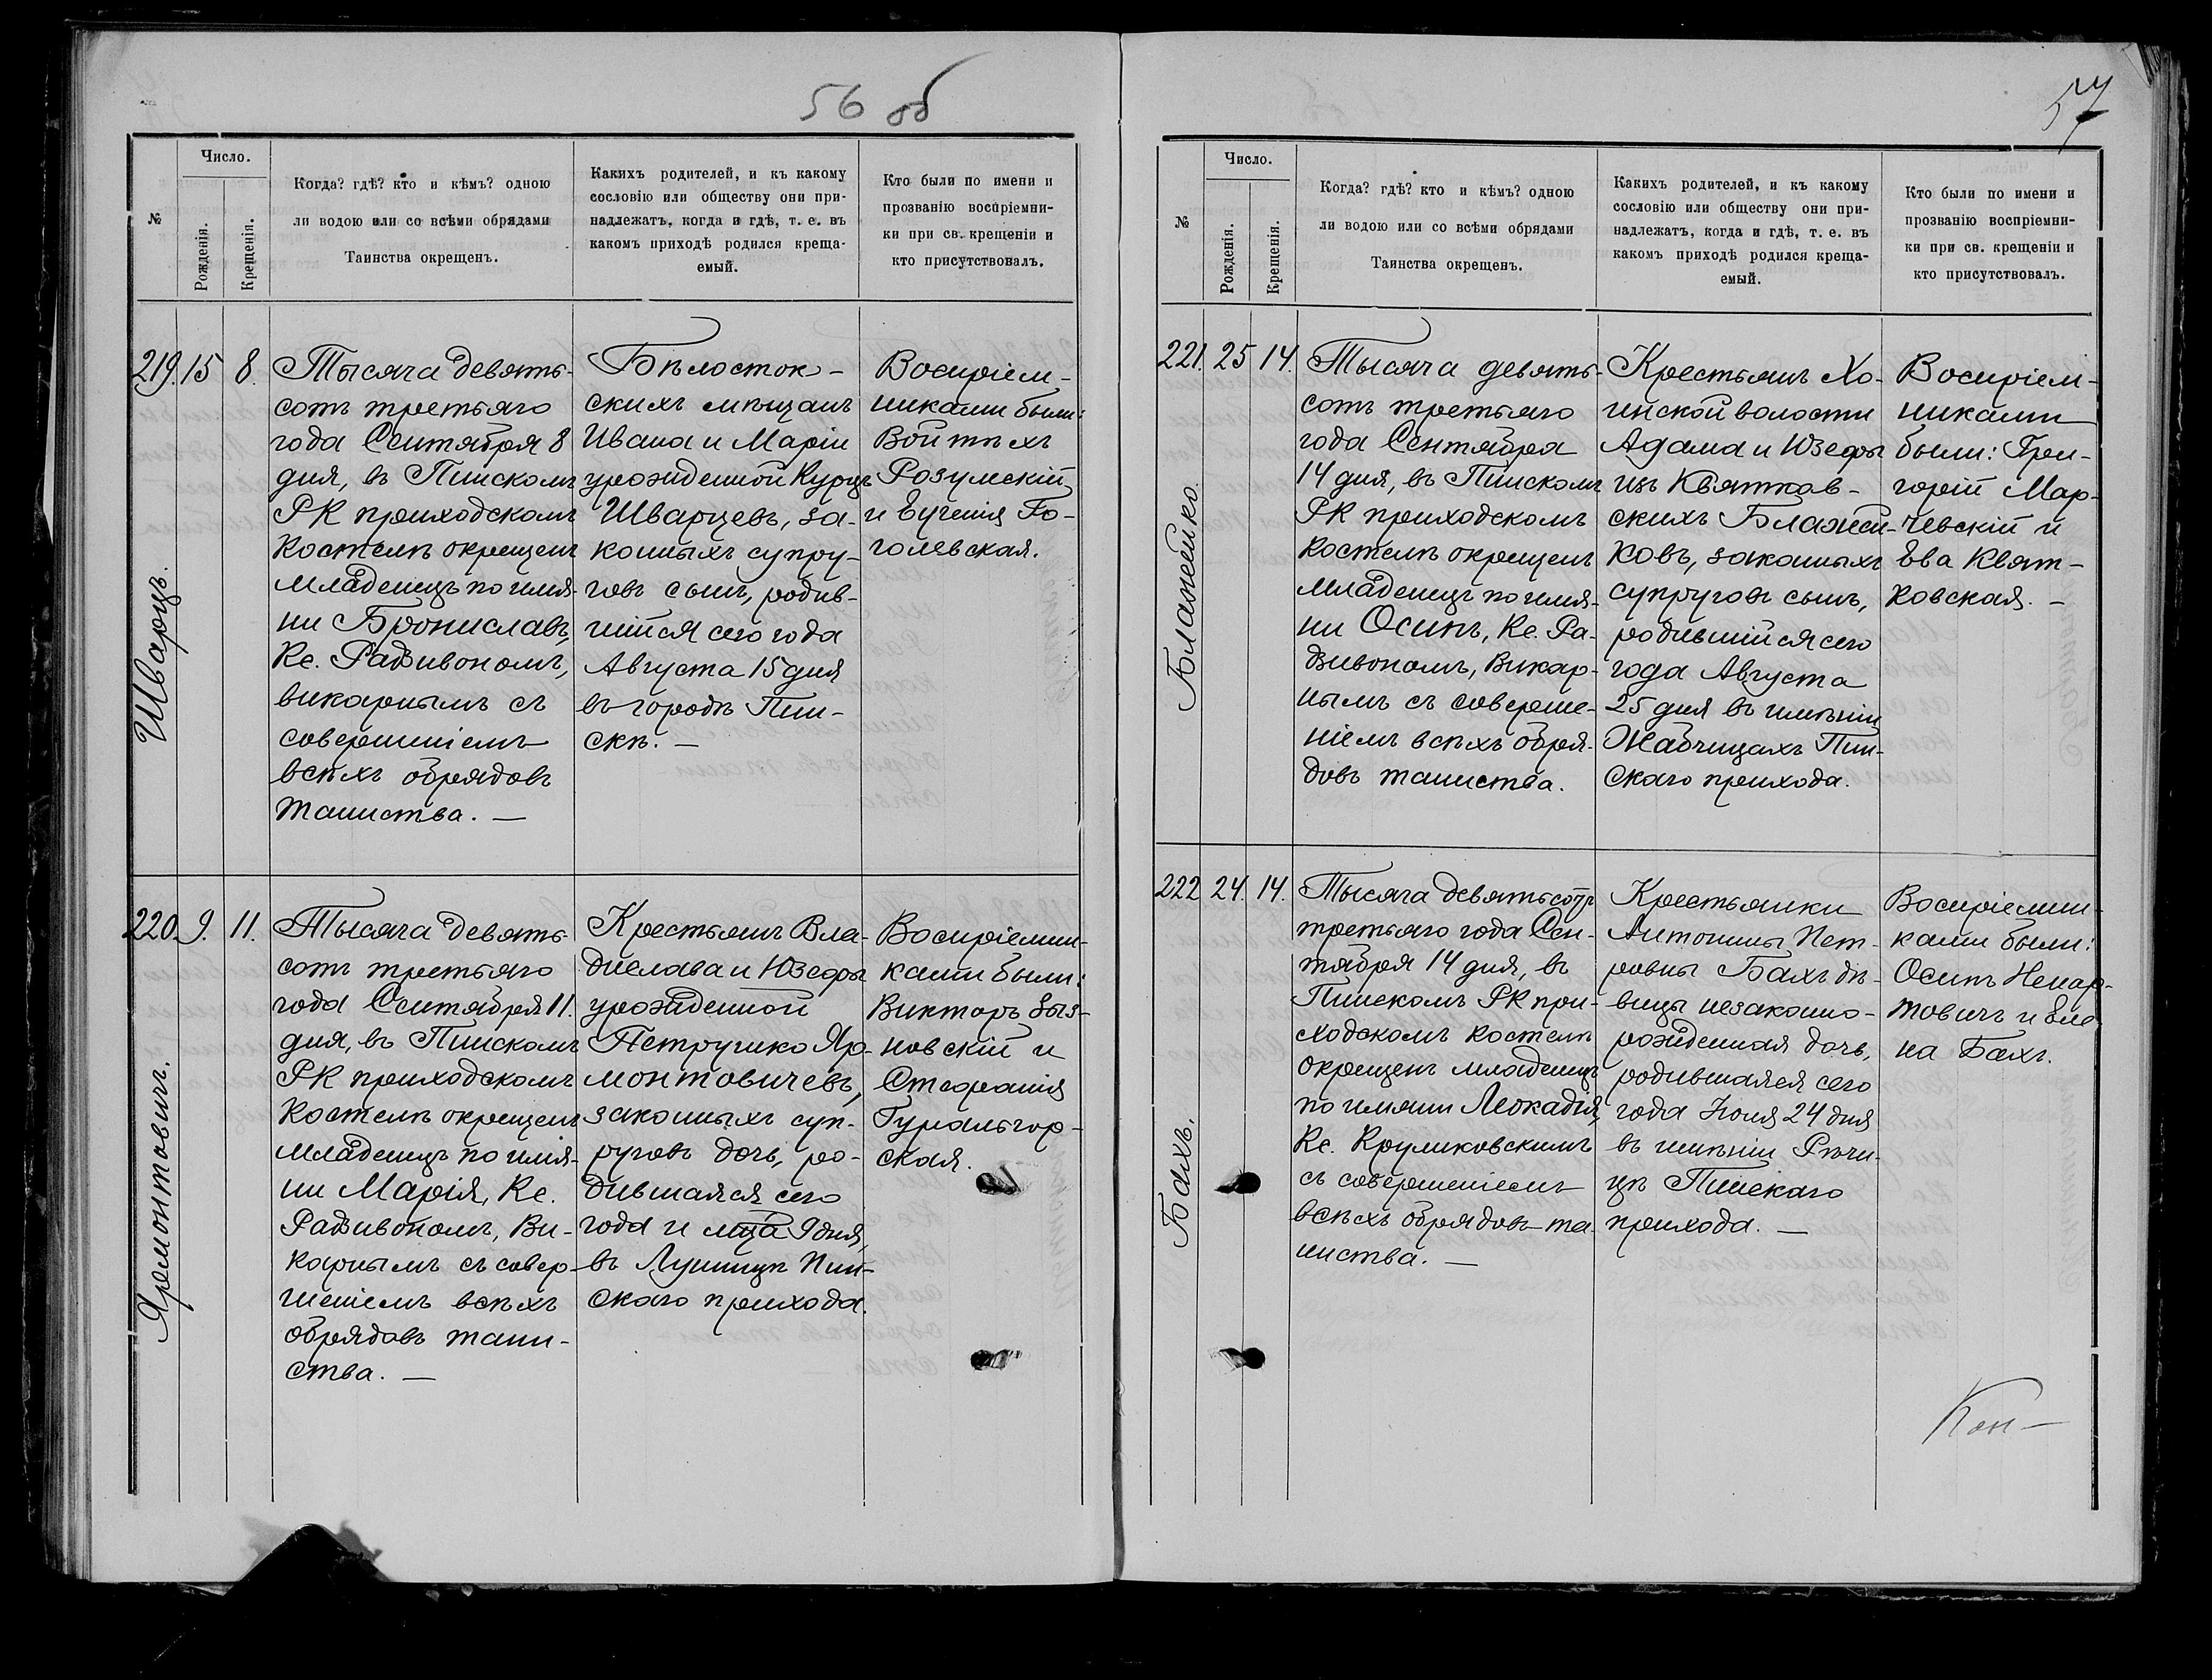 56 об
№
Число.
Рожденія.
Крещенія.
Когда? гдѣ? кто и кѣмъ? одною
ли водою или со всѣми обрядами
Таинства окрещенъ.
Каких​ъ родителей, и къ какому
сословію или обществу они при-
надлежатъ, когда и гдѣ, т. е. въ
какомъ приходѣ родился креща-
емый.
Кто были по имени и
прозванію воспріемни-
ки при св. крещеніи и
кто присутствовалъ.
219. 15 8.
Шварцъ.
Тысяча девять-
сотъ третьяго
года Сентября 8
дня, въ Пинскомъ
РК приходскомъ
костелѣ окрещенъ
младенецъ по имя-
ни Брониславъ,
Кс. Радзивономъ,
викарнымъ съ
совершеніемъ
всѣхъ обрядовъ
таинства. —
Бѣлосток-
скихъ мѣщанъ
Ивана и Маріи
урожденной Курцъ
Шварцевъ, за-
конныхъ супру-
говъ сынъ, родив-
шійся сего года
Августа 15 дня
въ городѣ Пин-
скѣ. —
Воспріем-
никами были:
Войтѣхъ
Розумскій
и Евгенія Го-
голевская.
220. 9. 11.
Яремонтовичъ.
Тысяча девять-
сотъ третьяго
года Сентября 11.
дня, въ Пинскомъ
РК приходскомъ
костелѣ окрещенъ
младенецъ по имя-
ни Марія, Кс.
Радзивономъ, Ви-
карнымъ съ совер-
шеніемъ всѣхъ
обрядовъ таин-
ства. —
Крестьянъ Вла-
дислава и Юзефы
урожденной
Петрушко Яр-
монтовичевъ,
законныхъ суп-
руговъ дочь, ро-
дившаяся сего
года и мца 9 дня,
въ Лунинцѣ Пин-
скаго прихода.
Воспріемни-
ками были:
Викторъ Выз-
новскій и
Стефанія
Гуральгор-
ская.
57
№
Число.
Рожденія.
Крещенія.
Когда? гдѣ? кто и кѣмъ? одною
ли водою или со всѣми обрядами
Таинства окрещенъ.
Какихъ родителей, и къ какому
сословію или обществу они при-
надлежатъ, когда и гдѣ, т. е. въ
какомъ приходѣ родился креща-
емый.
Кто были по имени и
прозванію воспріемни-
ки при св. крещеніи и
кто присутствовалъ.
221. 25 14.
Блажейко.
Тысяча девять-
сотъ третьяго
года Сентября
14 дня, въ Пинскомъ
РК приходскомъ
костелѣ окрещенъ
младенецъ по имя-
ни Осипъ, Кс. Ра-
дзивономъ, Викар-
нымъ съ соверше-
ніемъ всѣхъ обря-
довъ таинства.
Крестьянъ Хо-
инской волости
Адама и Юзефы
изъ Квятков-
скихъ Блажей-
ковъ, законныхъ
супруговъ сынъ,
родившійся сего
года Августа
25 дня въ имѣніи
Жабчицахъ Пин-
скаго прихода.
Воспріем-
никами
были: Гри-
горій Мар-
чевскій и
Ева Квят-
ковская. —
222 24. 14.
Бахъ.
Тысяча девятьсотъ
третьяго года Сен-
тября 14 дня, въ
Пинскомъ РК при-
ходскомъ костелѣ
окрещенъ младенецъ
по имяни Леокадія,
Кс. Круликовскимъ
съ совершеніемъ
всѣхъ обрядовъ та-
инства. —
Крестьянки
Антонины Пет-
ровны Бахъ дѣ-
вицы незаконно-
рожденная дочь,
родившаяся сего
года Іюля 24 дня
въ имѣніи Рѣчи-
цѣ Пинскаго
прихода. —
Воспріемни-
ками были:
Осипъ Ненар-
товичъ и Еле-
на Бахъ.